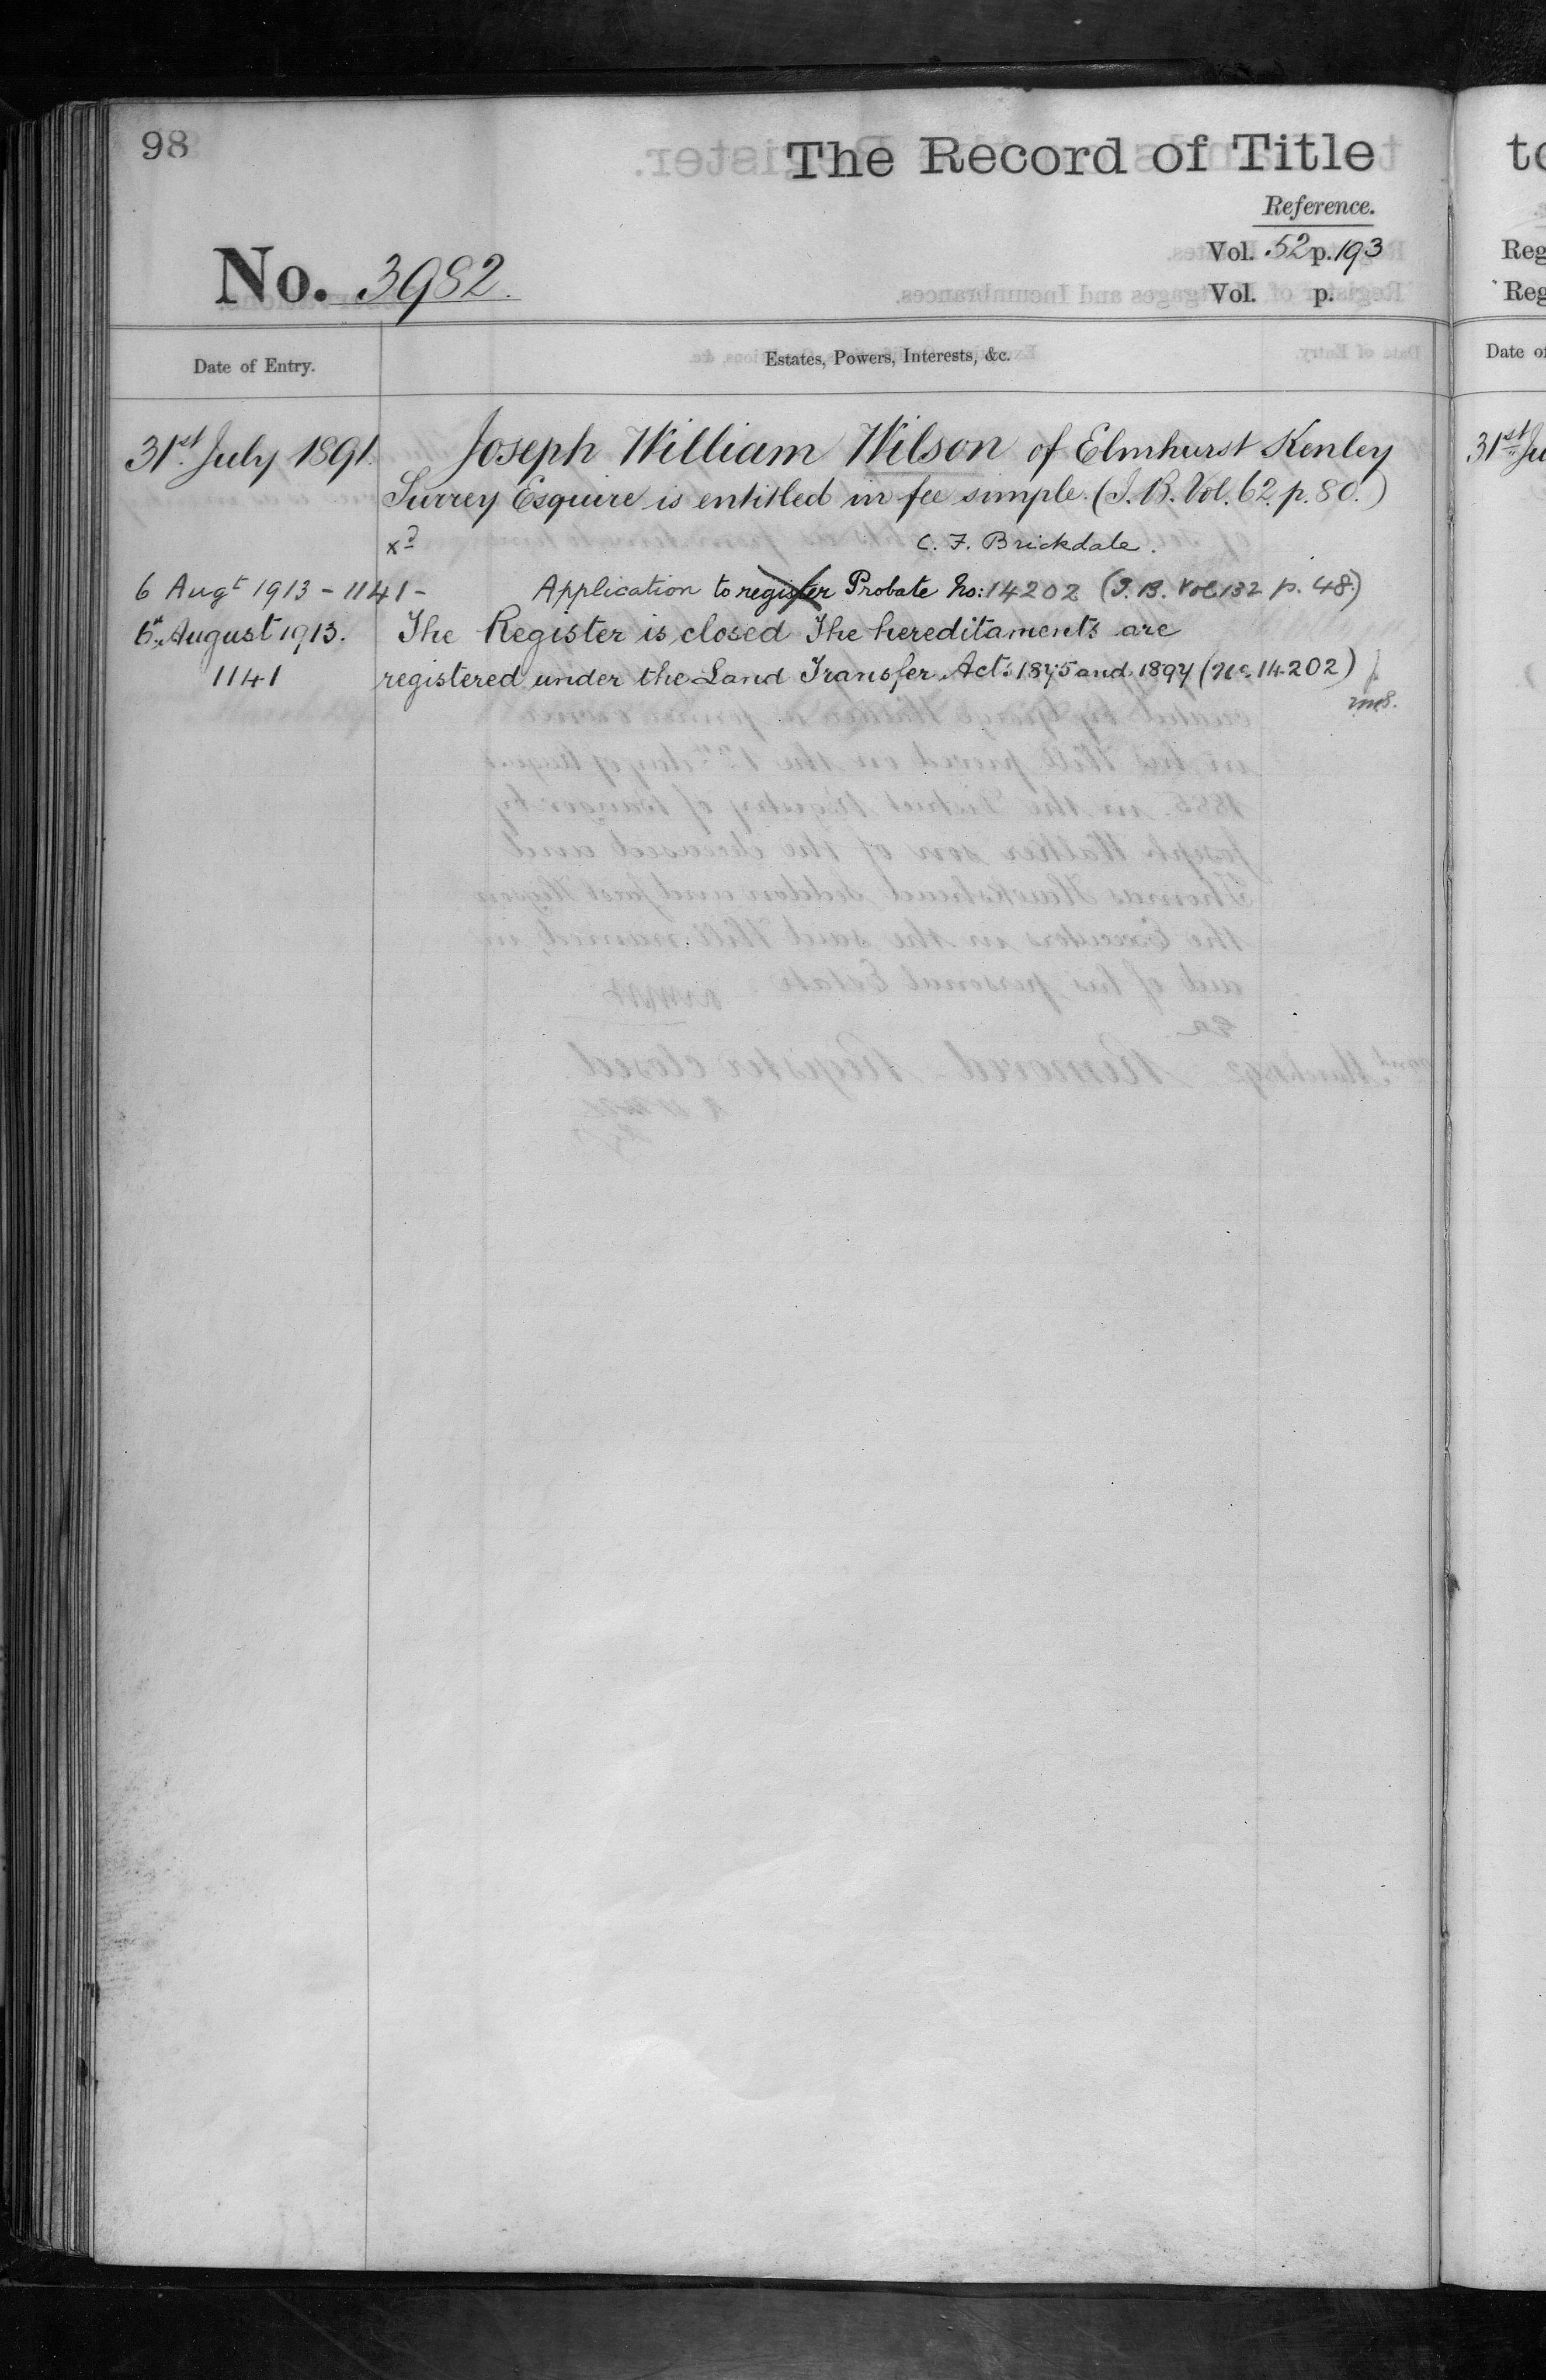 98
The Record of Title
Reference.
Vol. 52 p. 193
No. 3982.
Vol. p.
Date of Entry.
Estates, Powers, Interests, &c.
31st July 1891. Joseph William Wilson of Elmhurst Kenley
Surrey Esquire is entitled in fee simple. (I. B. Vol. 62. p. 80.)
xd C. F. Brickdale.
6 Augt 1913 - 1141 - Application to register Probate No: 14202 (I. B. Vol. 132 p. 48.)
6th August 1913. The Register is closed The hereditaments are
1141 registered under the Land Transfer Acts 1875 and 1897 (No. 14202)
to
Reg
Reg
Date of
31st Ju